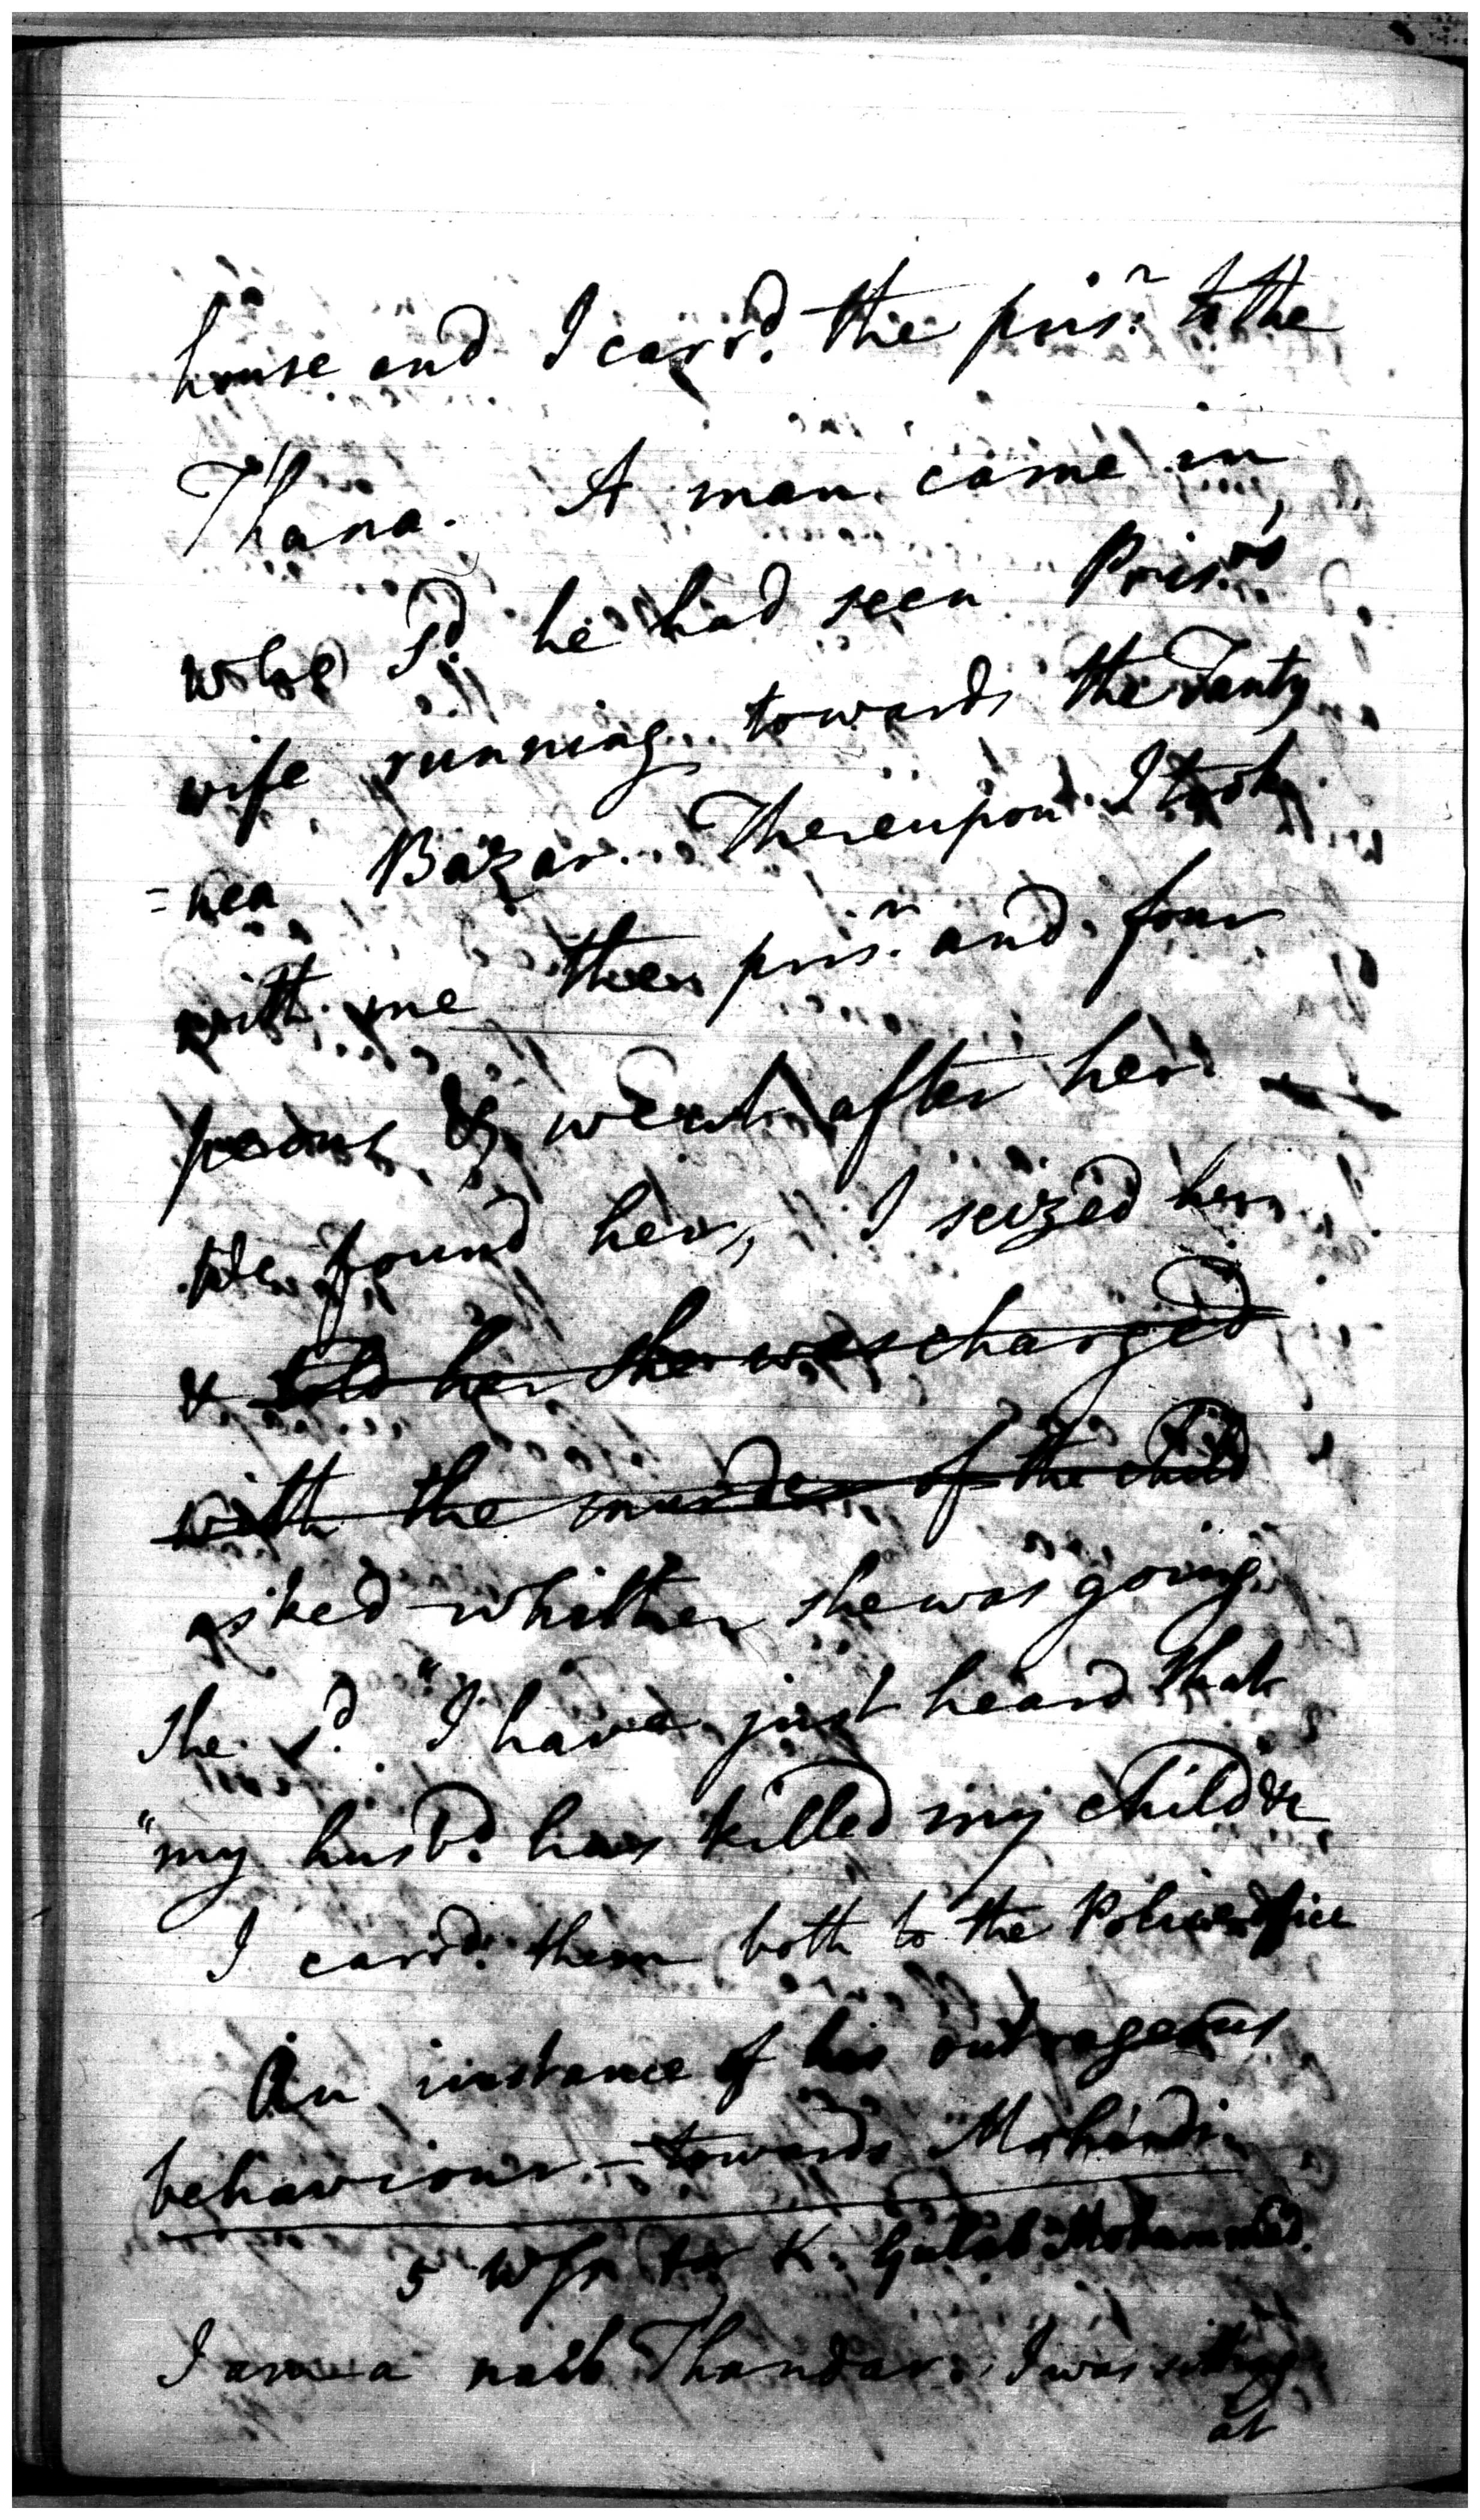 house and I carrd. the prisr. to the
Thana. A man came in,
who sd. he had seen Prisrs
wife running towards the Tanty
=nea Bazar. Thereupon I took
with me the prisr. and four
peons & went after her
We found her, I seized her
& told her she was charged
with the murder of the child
asked whither she was going.
She sd. "I have just heard that
"my husbd. has killed my child &
I carrd. them both to the Police office
An instance of his outrageous
behaviour - towards Mohindi
5 Wss for K. Gulab Mohammed.
I am a naib Thandar. I was sitting
at